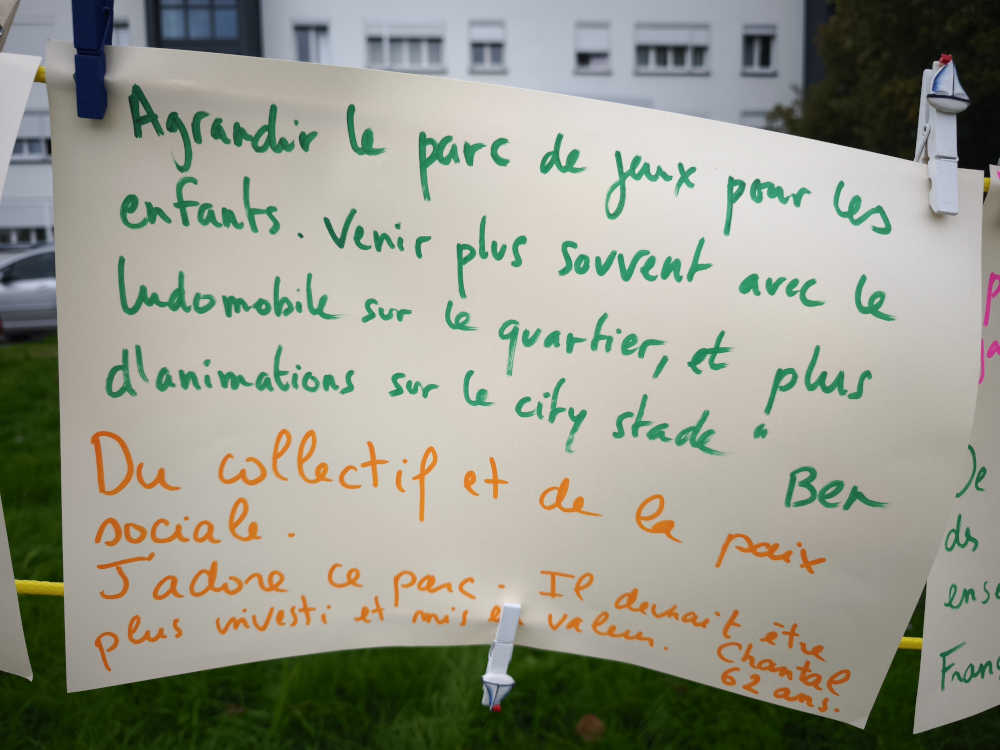 Agrandir le parc de jeux pour les
enfants. Venir plus souvent avec le
ludomobile sur le quartier, et plus
d'animations sur le city stade "
Ben
Du collectif et de la paix
sociale.
J'adore ce parc. Il devrait être
plus investi et mis en valeur.
Chantal
62 ans.
Je
des
ense
Franç